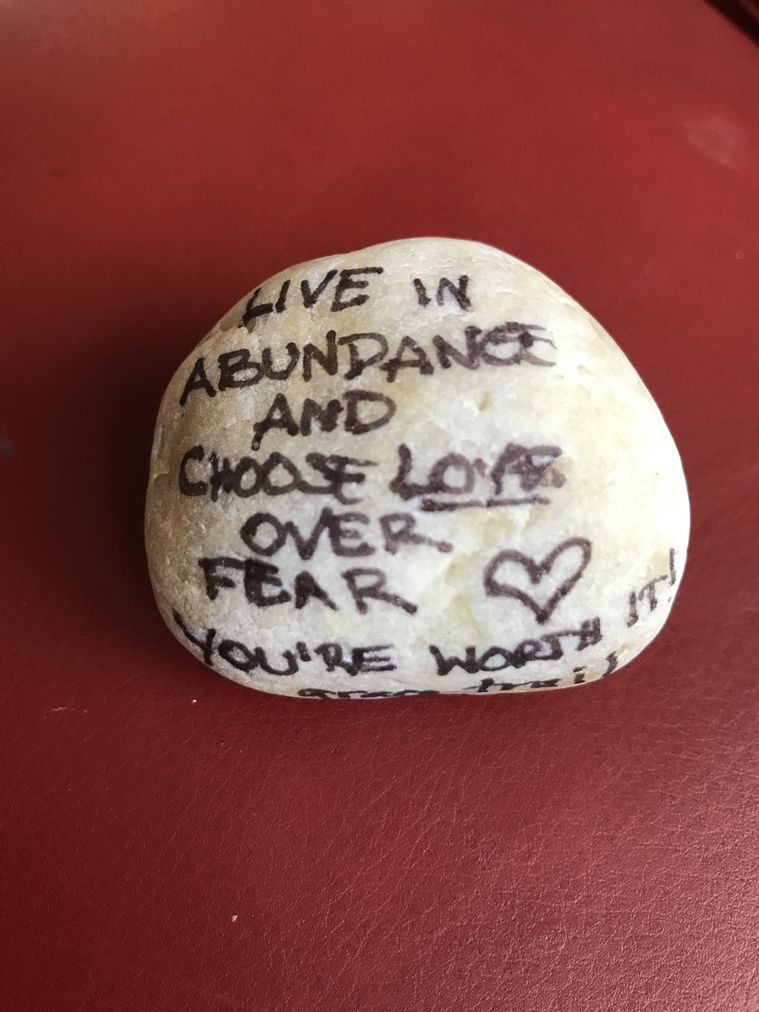 LIVE IN
ABUNDANCE
AND
CHOOSE LOVE
OVER
FEAR
YOU'RE WORTH IT!